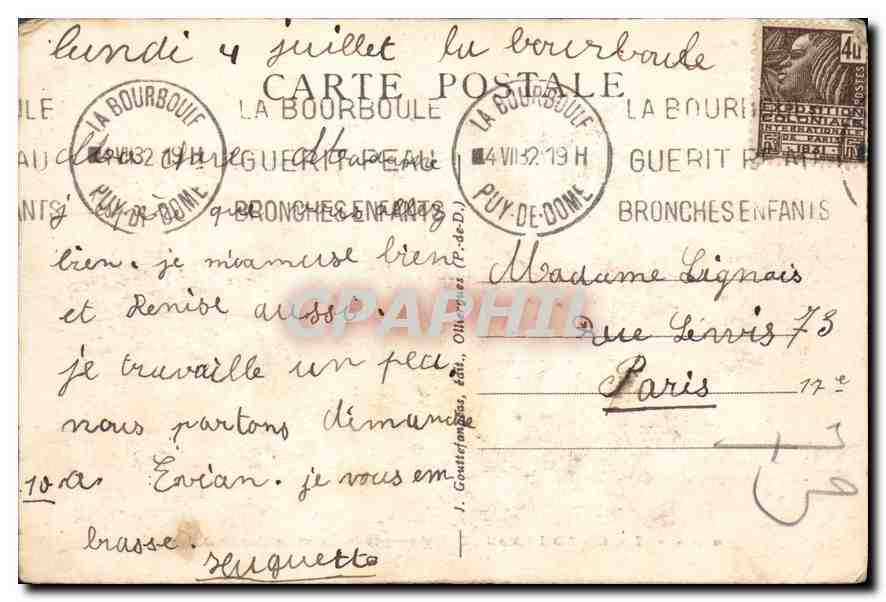 lundi 4 juillet la bourboule
CARTE POSTALE
LA BOURBOULE
4 VII 32 19 H
PUY-DE-DOME
LA BOURBOULE
GUERIT PEAU
BRONCHES ENFANTS
LA BOURBOULE
4 VII 32 19 H
PUY-DE-DOME
LA BOURB
GUERIT
BRONCHES ENFANTS
ULE
EAU
ANTS
40
POSTES
EXPOSITION
COLONIALE
INTERNATIONALE
DE PARIS
chère Madame
j'espère que vous allez
bien. je m'amuse bien
et Denise aussi.
je travaille un peu.
nous partons dimanche
10 a Evian. je vous em
brasse.
Huguette
J. Gouttefangeas, édit., Olliergues (P.-de-D.)
Madame Lignais
rue Lewis 73
Paris 17e
73
CPAPHIL